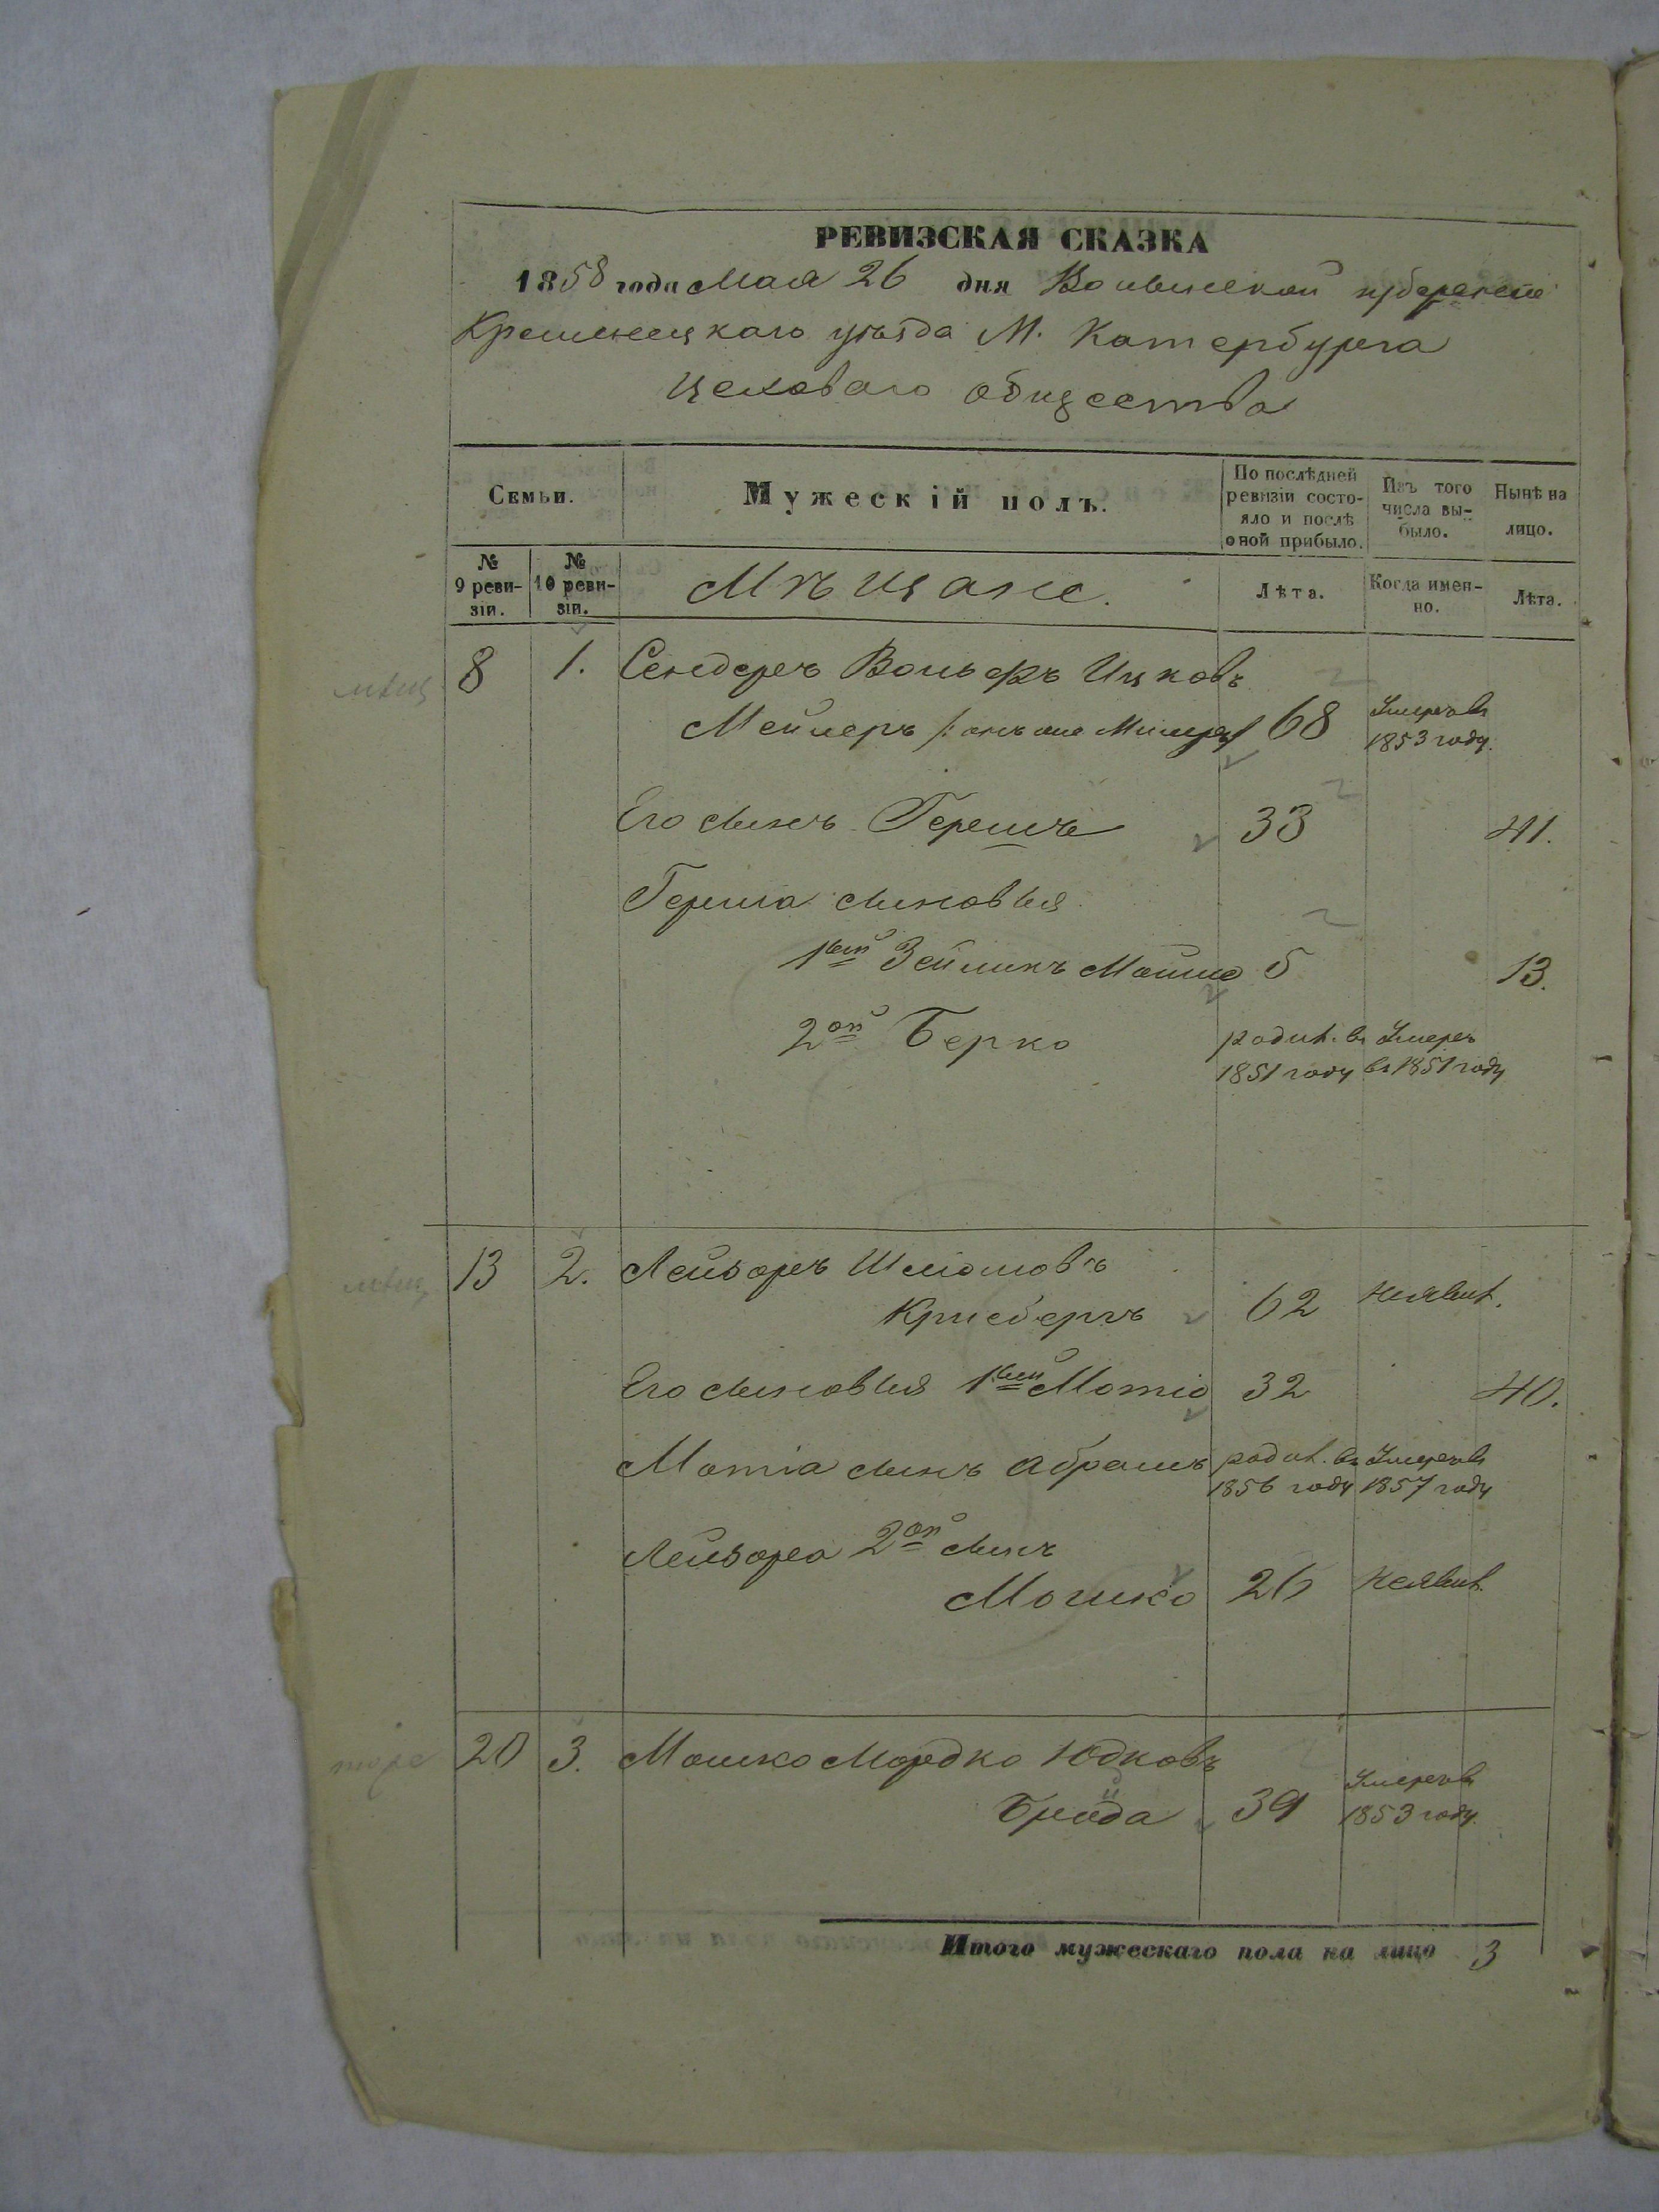 РЕВИЗСКАЯ СКАЗКА
1858 года Мая 26 дня Волынской губернiи
Кременецкаго уѣзда М. Катербурга
Цеховаго общества
Семьи.
Мужескiй полъ.
По послѣдней ревизiи состояло и послѣ оной прибыло.
Изъ того числа выбыло.
Нынѣ на лицо.
№ 9 ревизiи.
№ 10 ревизiи.
Мѣщане.
Лѣта.
Когда именно.
Лѣта.
мѣщ
8 1. Сендеръ Вольфъ Ицковъ
Мейлеръ /: онъ же Милеръ/ 68 Умеръ въ
1853 году.
Его сынъ Гершъ 33 41.
Герша сыновья
1вый Зейликъ Мошко 5 13.
2ой Берко родил. въ Умеръ
1851 году въ 1851 году
мѣщ
13 2. Лейзоръ Шлiомовъ
Крисбергъ 62 неявил.
Его сыновья 1вый Мотiо 32 40.
Мотiа сынъ Абрамъ родил. въ Умеръ въ
1856 году 1857 году
Лейзора 2ой сынъ
Мошко 26 неявил.
20 3. Мошко Мордко Юдковъ
Брейда 39 Умеръ въ
1853 году.
Итого мужескаго пола на лицо 3